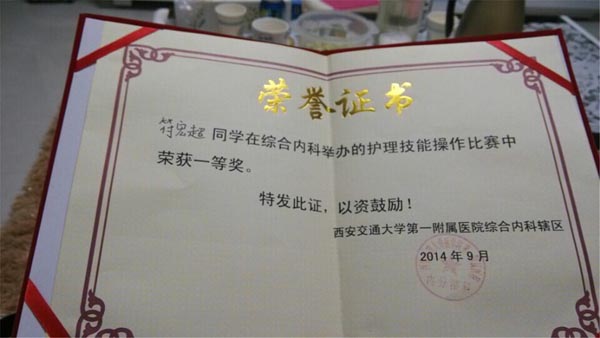 荣誉证书
符宏超同学在综合内科举办的护理技能操作比赛中
荣获一等奖。
特发此证，以资鼓励！
西安交通大学第一附属医院综合内科辖区
2014年9月